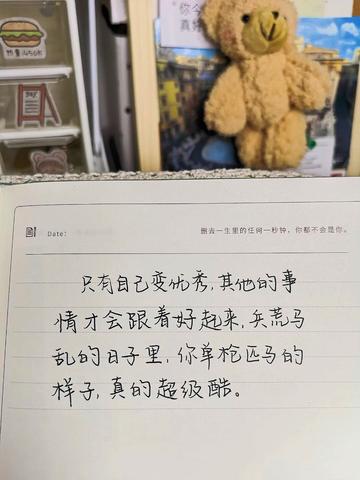 你今
真好
热量450K
Date:
删去一生里的任何一秒钟，你都不会是你。
只有自己变优秀,其他的事
情才会跟着好起来,兵荒马
乱的日子里,你单枪匹马的
样子,真的超级酷。